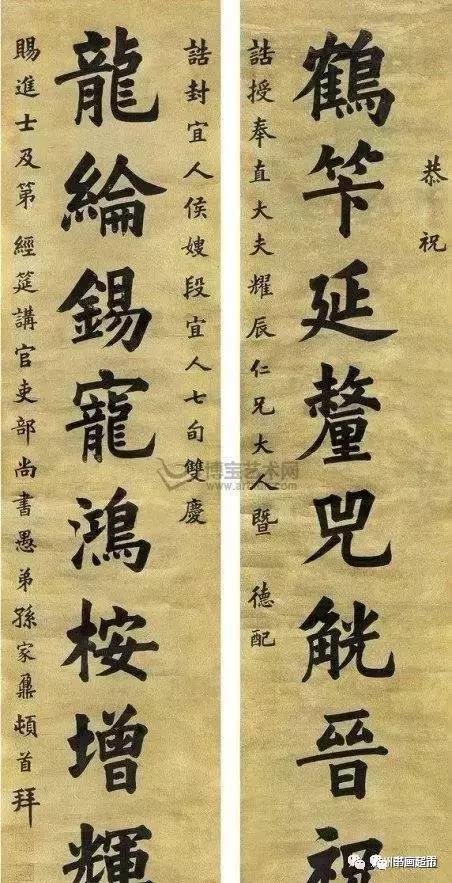 恭祝
鶴笇延釐兕觥晉祝
誥授奉直大夫耀辰仁兄大人暨 德配
誥封宜人侯嫂段宜人七旬雙慶
龍綸錫寵鴻桉增輝
賜進士及第 經筵講官吏部尚書愚弟孫家鼐頓首拜
博宝艺术网